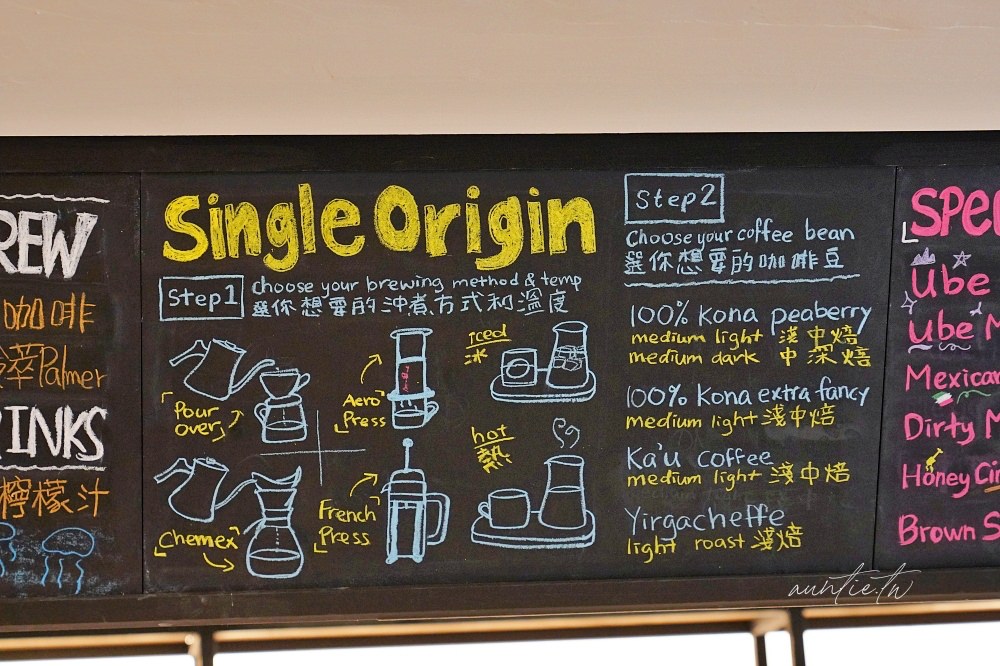 REW
咖啡
冷萃Palmer
RINKS
檸檬汁
Single Origin
Step1
choose your brewing method & temp
選你想要的沖煮方式和溫度
Pour over
Aero Press
iced
冰
Chemex
French Press
hot
熱
Step2
Choose your coffee bean
選你想要的咖啡豆
100% Kona peaberry
medium light 淺中焙
medium dark 中深焙
100% Kona extra fancy
medium light 淺中焙
Ka'u coffee
medium light 淺中焙
Yirgacheffe
light roast 淺焙
SPE
Ube
Ube M
Mexican
Dirty M
Honey Cin
Brown S
auntie.tw